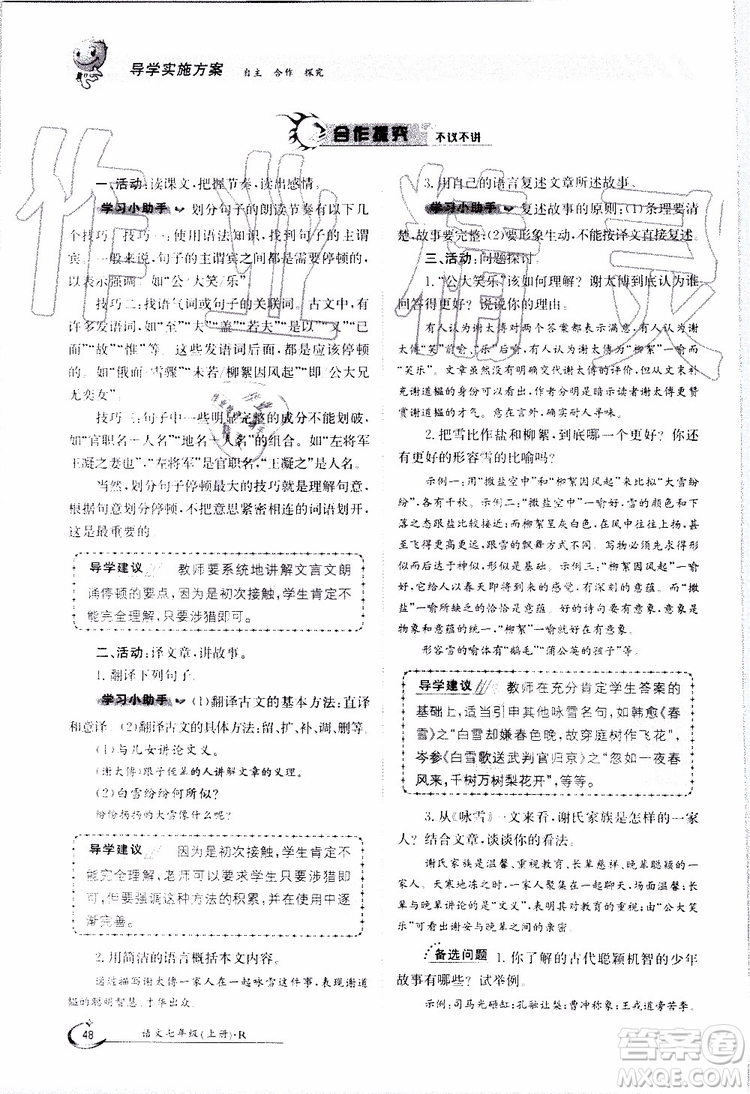 导学实施方案 自主 合作 探究
合作探究 不议不讲
一、活动:读课文,把握节奏,读出感情。
学习小助手 划分句子的朗读节奏有以下几
个技巧:技巧一:使用语法知识,找到句子的主谓
宾。一般在主谓之间,动宾之间都是需要停顿的,
以表示强调。如“公大笑/乐”。
技巧二:找语气词或句子的关联词。古文中,有
许多发语词,如“至”“夫”“盖”“若夫”“又”“已
而”“故”“惟”等。这些发语词后面应该停顿
的。如“俄而/雪骤”“未若/柳絮因风起”“即/公大兄
无奕女”。
技巧三:句子中一些明显完整的成分不能划破,
如“官职名+人名”“地名+人名”的组合。如“左将军
王凝之妻也”,“左将军”是官职名,“王凝之”是人名。
当然,划分句子停顿最大的技巧就是理解句意,
根据句意划分停顿,不要把意思紧密相连的词语划开
这是最重要的。
导学建议 教师要系统地讲解文言文朗
诵停顿的要点,因为是初次接触,学生肯定不
能完全理解,只要涉猎即可。
二、活动:译文章,讲故事。
1. 翻译下列句子。
学习小助手 (1)翻译古文的基本方法:直译
和意译。(2)翻译古文的具体方法:留、扩、补、调、删等。
(1)与儿女讲论文义。
(谢太傅)跟子侄辈的人讲解文章的义理。
(2)白雪纷纷何所似?
纷纷扬扬的大雪像什么呢?
导学建议 因为是初次接触,学生肯定不
能完全理解,老师可以要求学生只进行涉猎
即可。但要强调这种方法的积累,并在使用中逐
渐完善。
2. 用简洁的语言概括本文内容。
通过描写谢太傅一家人在一起咏雪的和乐情景,展现谢道
韫的聪明智慧、才华出众。
3. 用自己的语言复述文章所述故事。
学习小助手 复述故事的原则:(1)条理要清
楚,故事要完整;(2)要形象生动,不能按译文直接复述。
三、活动:问题探讨。
1.“公大笑乐”该如何理解?谢太傅到底认为谁
回答得更好?说说你的理由。
有人认为谢太傅对两个答案都表示满意。有人认为是谢
太傅“笑”前喻,“乐”后喻。有人认为谢太傅对“柳絮”一喻而
“笑乐”。文章没有正面回答,而在末尾交代身份时,特意补充
交代谢道韫的身份有深刻的意味,实际是在暗示读者谢太傅更
赞赏谢道韫的才气。作者没有直言,确实耐人寻味。
2. 把雪比作盐和柳絮,哪个更好?为什么?你还
有更好的形容雪的比喻吗?
示例一:用“撒盐空中”和“柳絮因风起”来比拟“大雪纷
纷”,各有千秋。示例二:“撒盐空中”的比喻好,雪的颜色和下
落之态都跟盐比较接近;而柳絮呈灰白色,在风中往往上扬,
甚至飞得很高很远,跟雪的飘舞方式不同。写物必须首先求得
形似而后达于神似,形似是基础。示例三:“柳絮因风起”一
喻好,它给人以春天即将到来的感觉,有深刻的意蕴,而“撒
盐”一喻所缺乏的恰恰是意蕴。好的诗句要有意象,意象是
物象和意蕴的统一。“柳絮”一喻好就好在有意象。
形容雪的喻体有“鹅毛”“蒲公英的孩子”等。
导学建议 教师在充分肯定学生答案的
基础上,适当引申其他咏雪名句,如韩愈《春
雪》“白雪却嫌春色晚,故穿庭树作飞花”,
岑参《白雪歌送武判官归京》“忽如一夜春
风来,千树万树梨花开”,等等。
3. 从《咏雪》一文来看,谢氏家族是怎样的一家
人?结合文章,谈谈你的看法。
谢氏家族是温馨、重视教育、长辈慈祥、晚辈聪颖的一
家人。天寒地冻之时,大家集聚在一起,画面温馨。谢安与
晚辈讲论文义,其中表现了对教育的重视,而“公大笑
乐”则体现出了谢安与晚辈之间的亲密。
备选问题 1. 你了解的古代聪颖机智的少年
故事有哪些?试举例。
示例:司马光砸缸;孔融让梨;曹冲称象;王戎道旁苦李。
48 语文七年级(上册)·R
作业精灵
MXQE.COM